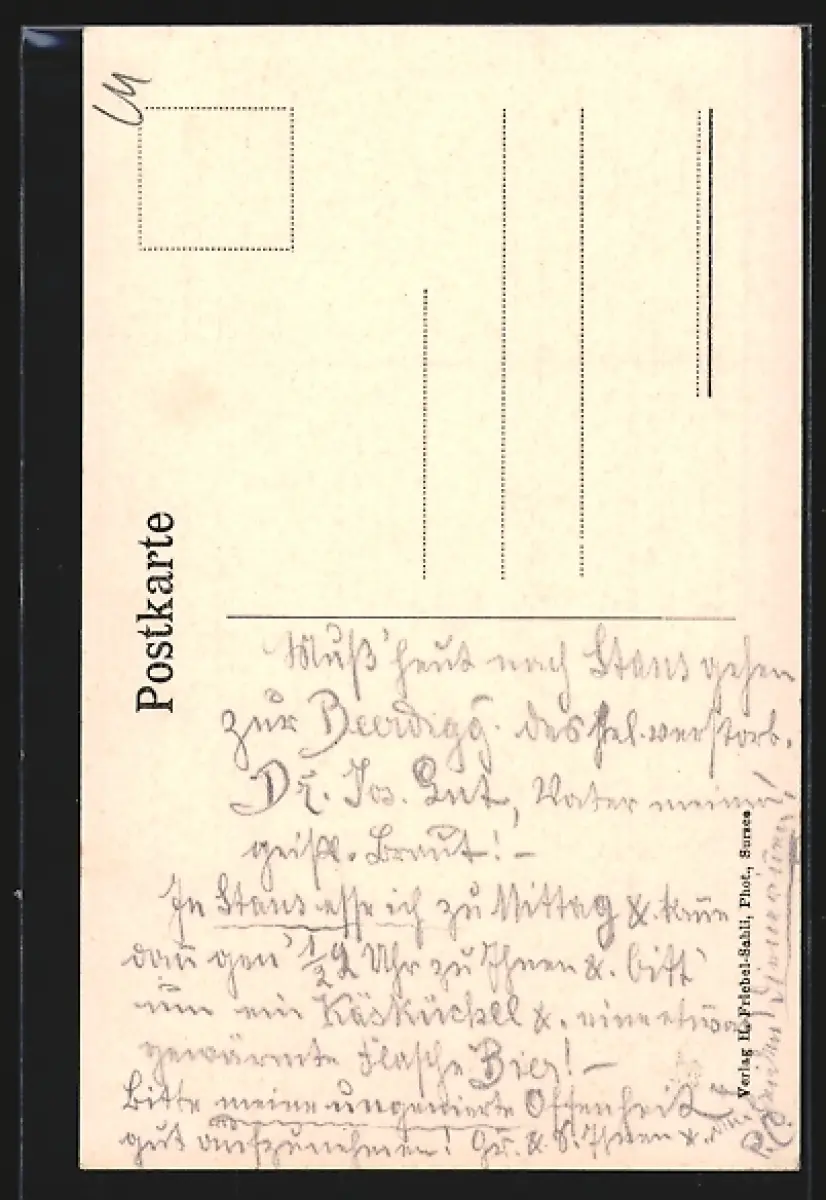 Postkarte
Muß heut nach Stans gehen
zur Beerdigg. des sel. verstorb.
Dr. Jos. Gut, Vater meiner
geistl. Braut! –
In Stans esse ich zu Mittag & kann
dann gen ½2 Uhr zu Ihnen & bitt'
um ein Käsküchel & eine etwas
gewärmte Flasche Bier! –
Bitte meine ungenierte Offenheit
gut aufzunehmen! Gr. & S. Ihnen &
Verlag H. Friebel-Sahli, Phot., Sursee